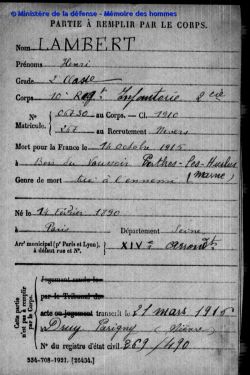 © Ministère de la défense - Mémoire des hommes
PARTIE À REMPLIR PAR LE CORPS.
Nom LAMBERT
Prénoms Henri
Grade 2e Classe
Corps 10e Regt Infanterie
N° 05630 au Corps. — Cl. 1910
Matricule. 251 au Recrutement Nevers
Mort pour la France le 14 Octobre 1915
à Bois du Perthes-Les-Hurlus
(Marne)
Genre de mort tué à l'ennemi
Né le 14 février 1890
à Paris Département Seine
Arrt municipal (pr Paris et Lyon), à défaut rue et N°. XIVe Arrondt
Cette partie n'est pas à remplir par le Corps.
Jugement rendu le
par le Tribunal de
acte ou jugement transcrit le 21 mars 1916
à Druy Parigny (Nièvre)
N° du registre d'état civil 269/490
534-708-1921. [26434.]